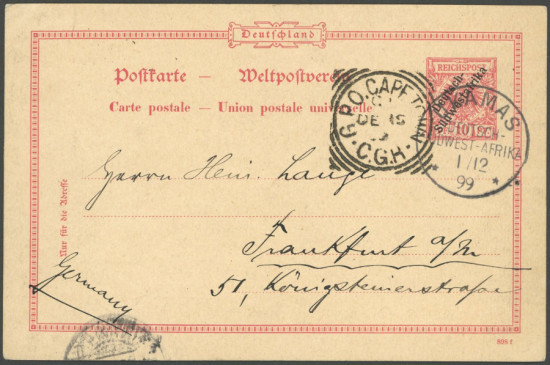 Deutschland
Postkarte — Weltpostverein
Carte postale — Union postale universelle
REICHSPOST
Deutsch-
Südwestafrika
10
G.P.O. CAPE TOWN
DE 15
C.G.H.
WEST-AFRIKA
1/12
99
Nur für die Adresse
Herrn Hein. Lange
Frankfurt a/M
51, Königsteinerstraße
Germany